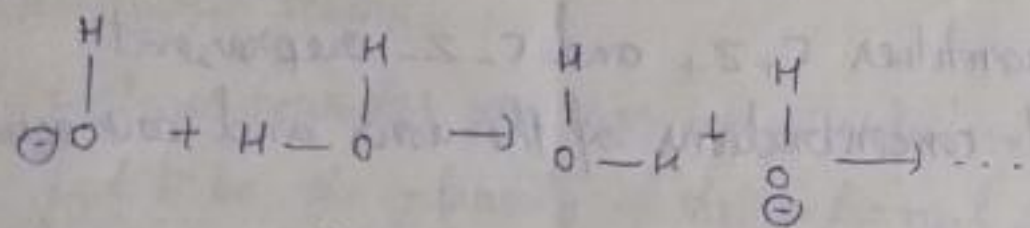 H H H H
⊖O + H — O → O — H + O → ...
⊖